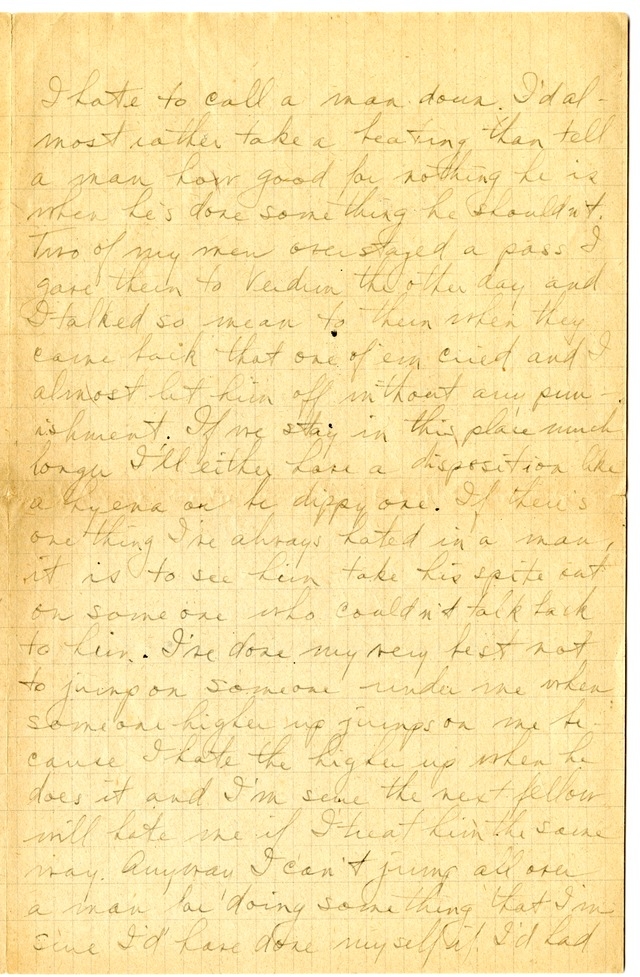 I hate to call a man down. I'd al-
most rather take a beating than tell
a man how good for nothing he is
when he's done something he shouldn't.
Two of my men overstayed a pass I
gave them to Verdun the other day and
I talked so mean to them when they
came back that one of em cried and I
almost let him off without any pun-
ishment. If we stay in this place much
longer I'll either have a disposition like
a hyena or be dippy one. If there's
one thing I've always hated in a man,
it is to see him take his spite out
on someone who couldn't talk back
to him. I've done my very best not
to jump on someone under me when
someone higher up jumps on me be-
cause I hate the higher up when he
does it and I'm sure the next fellow
will hate me if I treat him the same
way. Anyway I can't jump all over
a man for doing something that I'm
sure I'd have done myself if I'd had